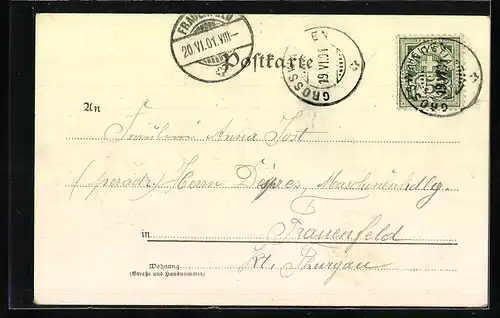 FRAUENFELD
20.VI.01.VIII-
Postkarte
GROSS
19.VI.01
GROSS
19.VI.01
5
An
Fräulein Anna Jost
(per adr.) Herrn Dépres, Maschinenhdlg.
in Frauenfeld
Wohnung
(Straße und Hausnummer)
Kt. Thurgau